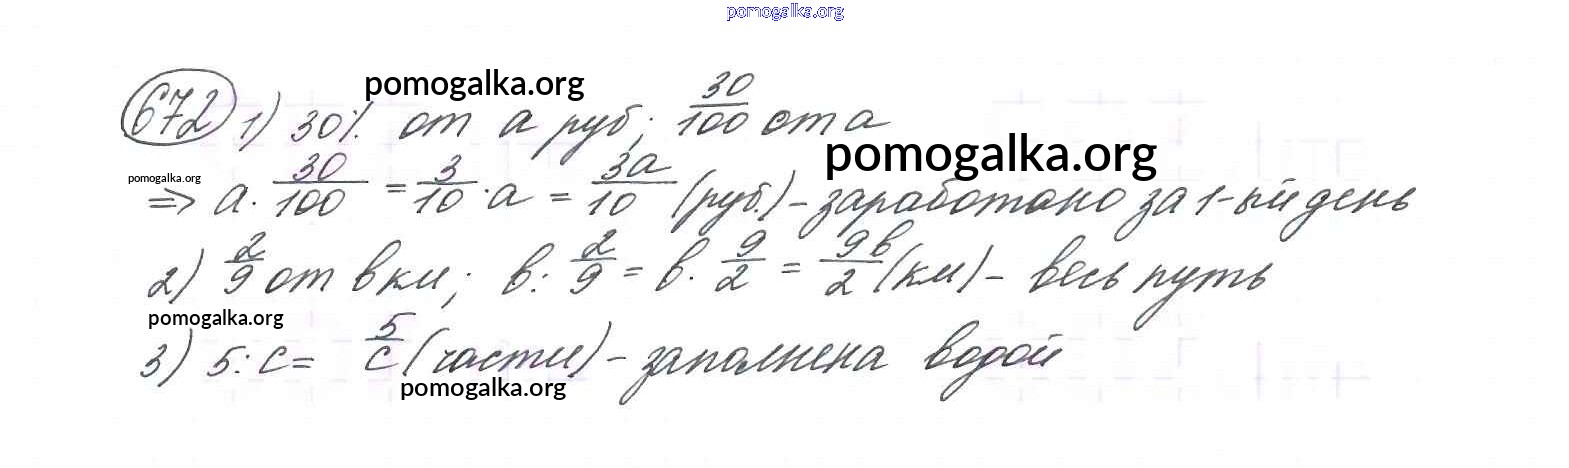 pomogalka.org
pomogalka.org
672 1) 30% от a руб; 30/100 от a
pomogalka.org
pomogalka.org
=> a · 30/100 = 3/10 · a = 3a/10 (руб.) – заработано за 1-ый день
2) 2/9 от в км; в : 2/9 = в · 9/2 = 9в/2 (км) – весь путь
pomogalka.org
3) 5 : c = 5/c (части) – заполнена водой
pomogalka.org